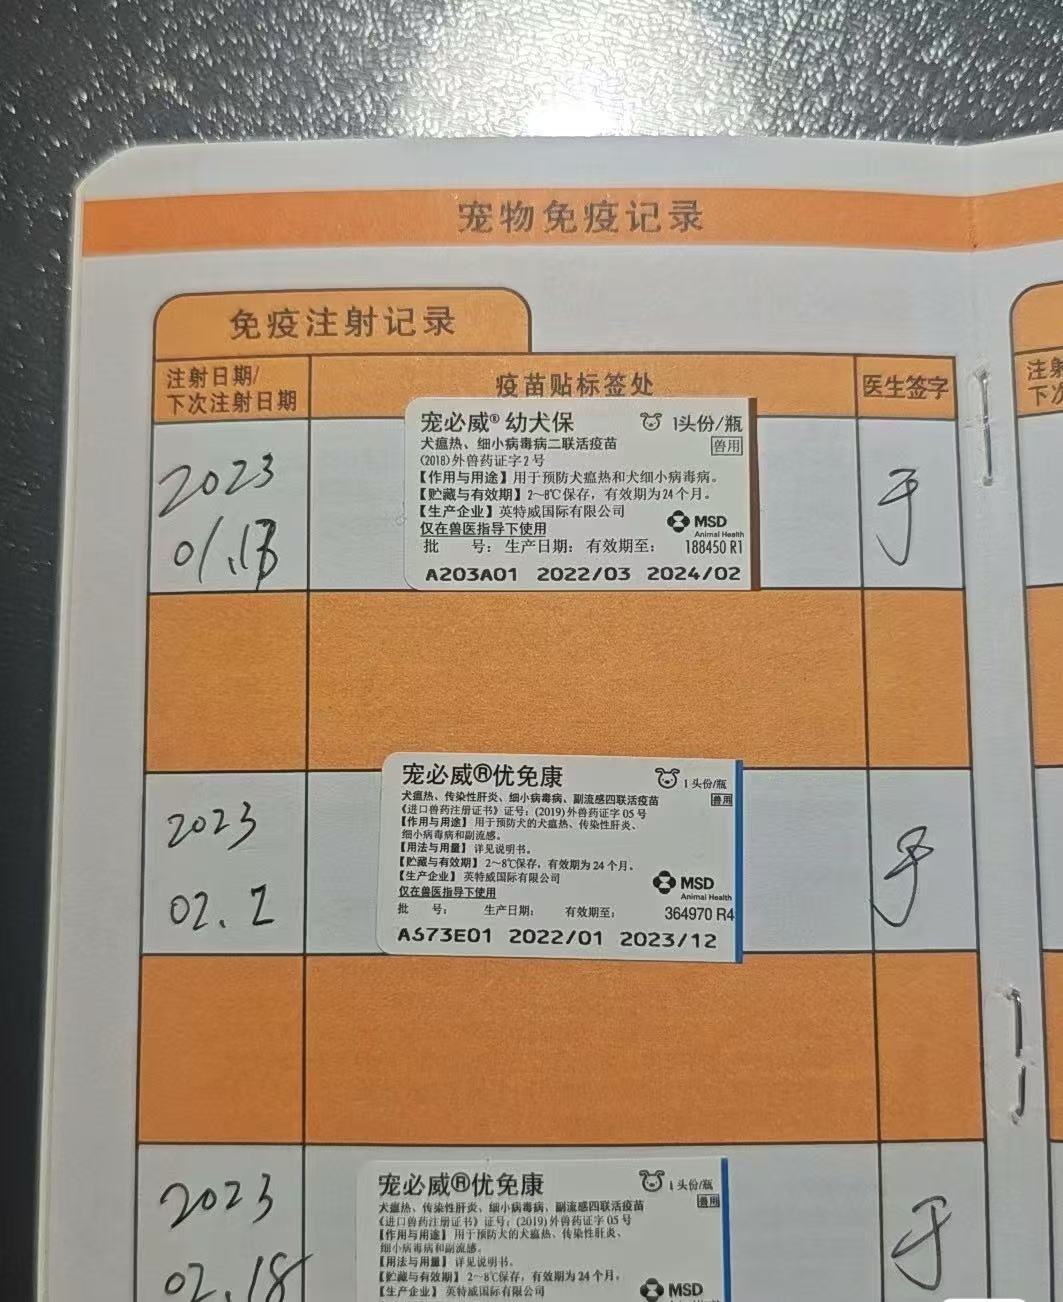 宠物免疫记录
免疫注射记录
注射日期/
下次注射日期
疫苗贴标签处
医生签字
注射
下次
2023
01.13
宠必威® 幼犬保
1头份/瓶
犬瘟热、细小病毒病二联活疫苗
兽用
(2018)外兽药证字2号
【作用与用途】用于预防犬瘟热和犬细小病毒病。
【贮藏与有效期】2~8℃保存，有效期为24个月。
【生产企业】英特威国际有限公司
仅在兽医指导下使用
MSD
Animal Health
批 号： 生产日期： 有效期至： 188450 R1
A203A01 2022/03 2024/02
于
2023
02.2
宠必威®优免康
1头份/瓶
犬瘟热、传染性肝炎、细小病毒病、副流感四联活疫苗
兽用
《进口兽药注册证书》证号：(2019)外兽药证字05号
【作用与用途】用于预防犬的犬瘟热、传染性肝炎、
细小病毒病和副流感。
【用法与用量】详见说明书。
【贮藏与有效期】2~8℃保存，有效期为24个月。
【生产企业】英特威国际有限公司
仅在兽医指导下使用
MSD
Animal Health
批 号： 生产日期： 有效期至： 364970 R4
A573E01 2022/01 2023/12
于
2023
02.18
宠必威®优免康
1头份/瓶
犬瘟热、传染性肝炎、细小病毒病、副流感四联活疫苗
兽用
《进口兽药注册证书》证号：(2019)外兽药证字05号
【作用与用途】用于预防犬的犬瘟热、传染性肝炎、
细小病毒病和副流感。
【用法与用量】详见说明书。
【贮藏与有效期】2~8℃保存，有效期为24个月。
【生产企业】英特威国际有限公司
MSD
于